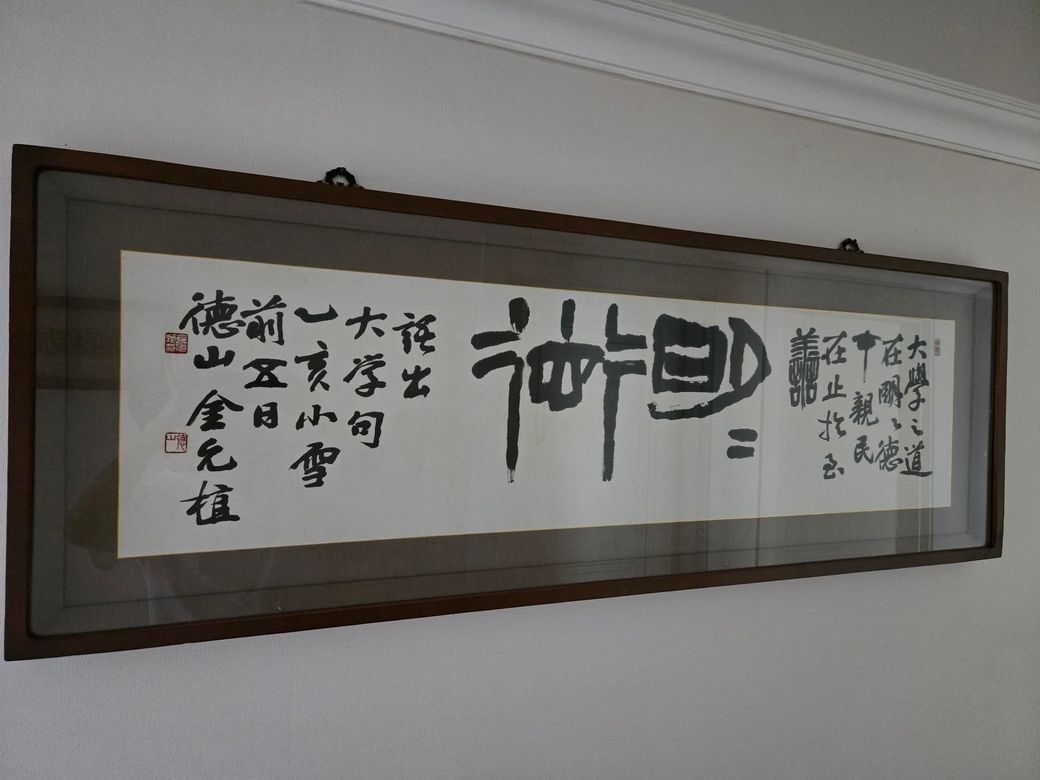 大學之道
在明〻德
在親民
在止於至
譱
明〻德
語出
大学句
乙亥小雪
前五日
德山金元植